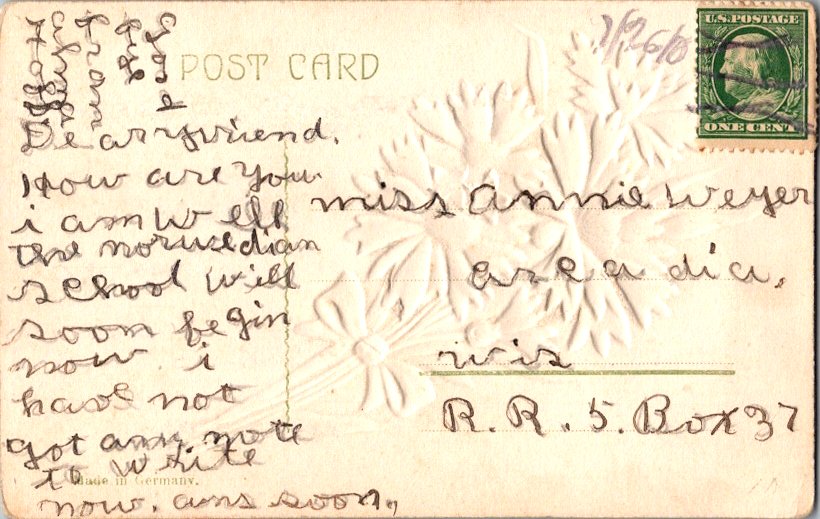 POST CARD
U.S. POSTAGE
ONE CENT
Dearryvriend.
How are you
i am well
the norwedian
school will
soon begin
now i
have not
got any note
to write
now. ans soon,
good
from
miss annie weyer
arcadia,
wis
R. R. 5. Box 37
Made in Germany.